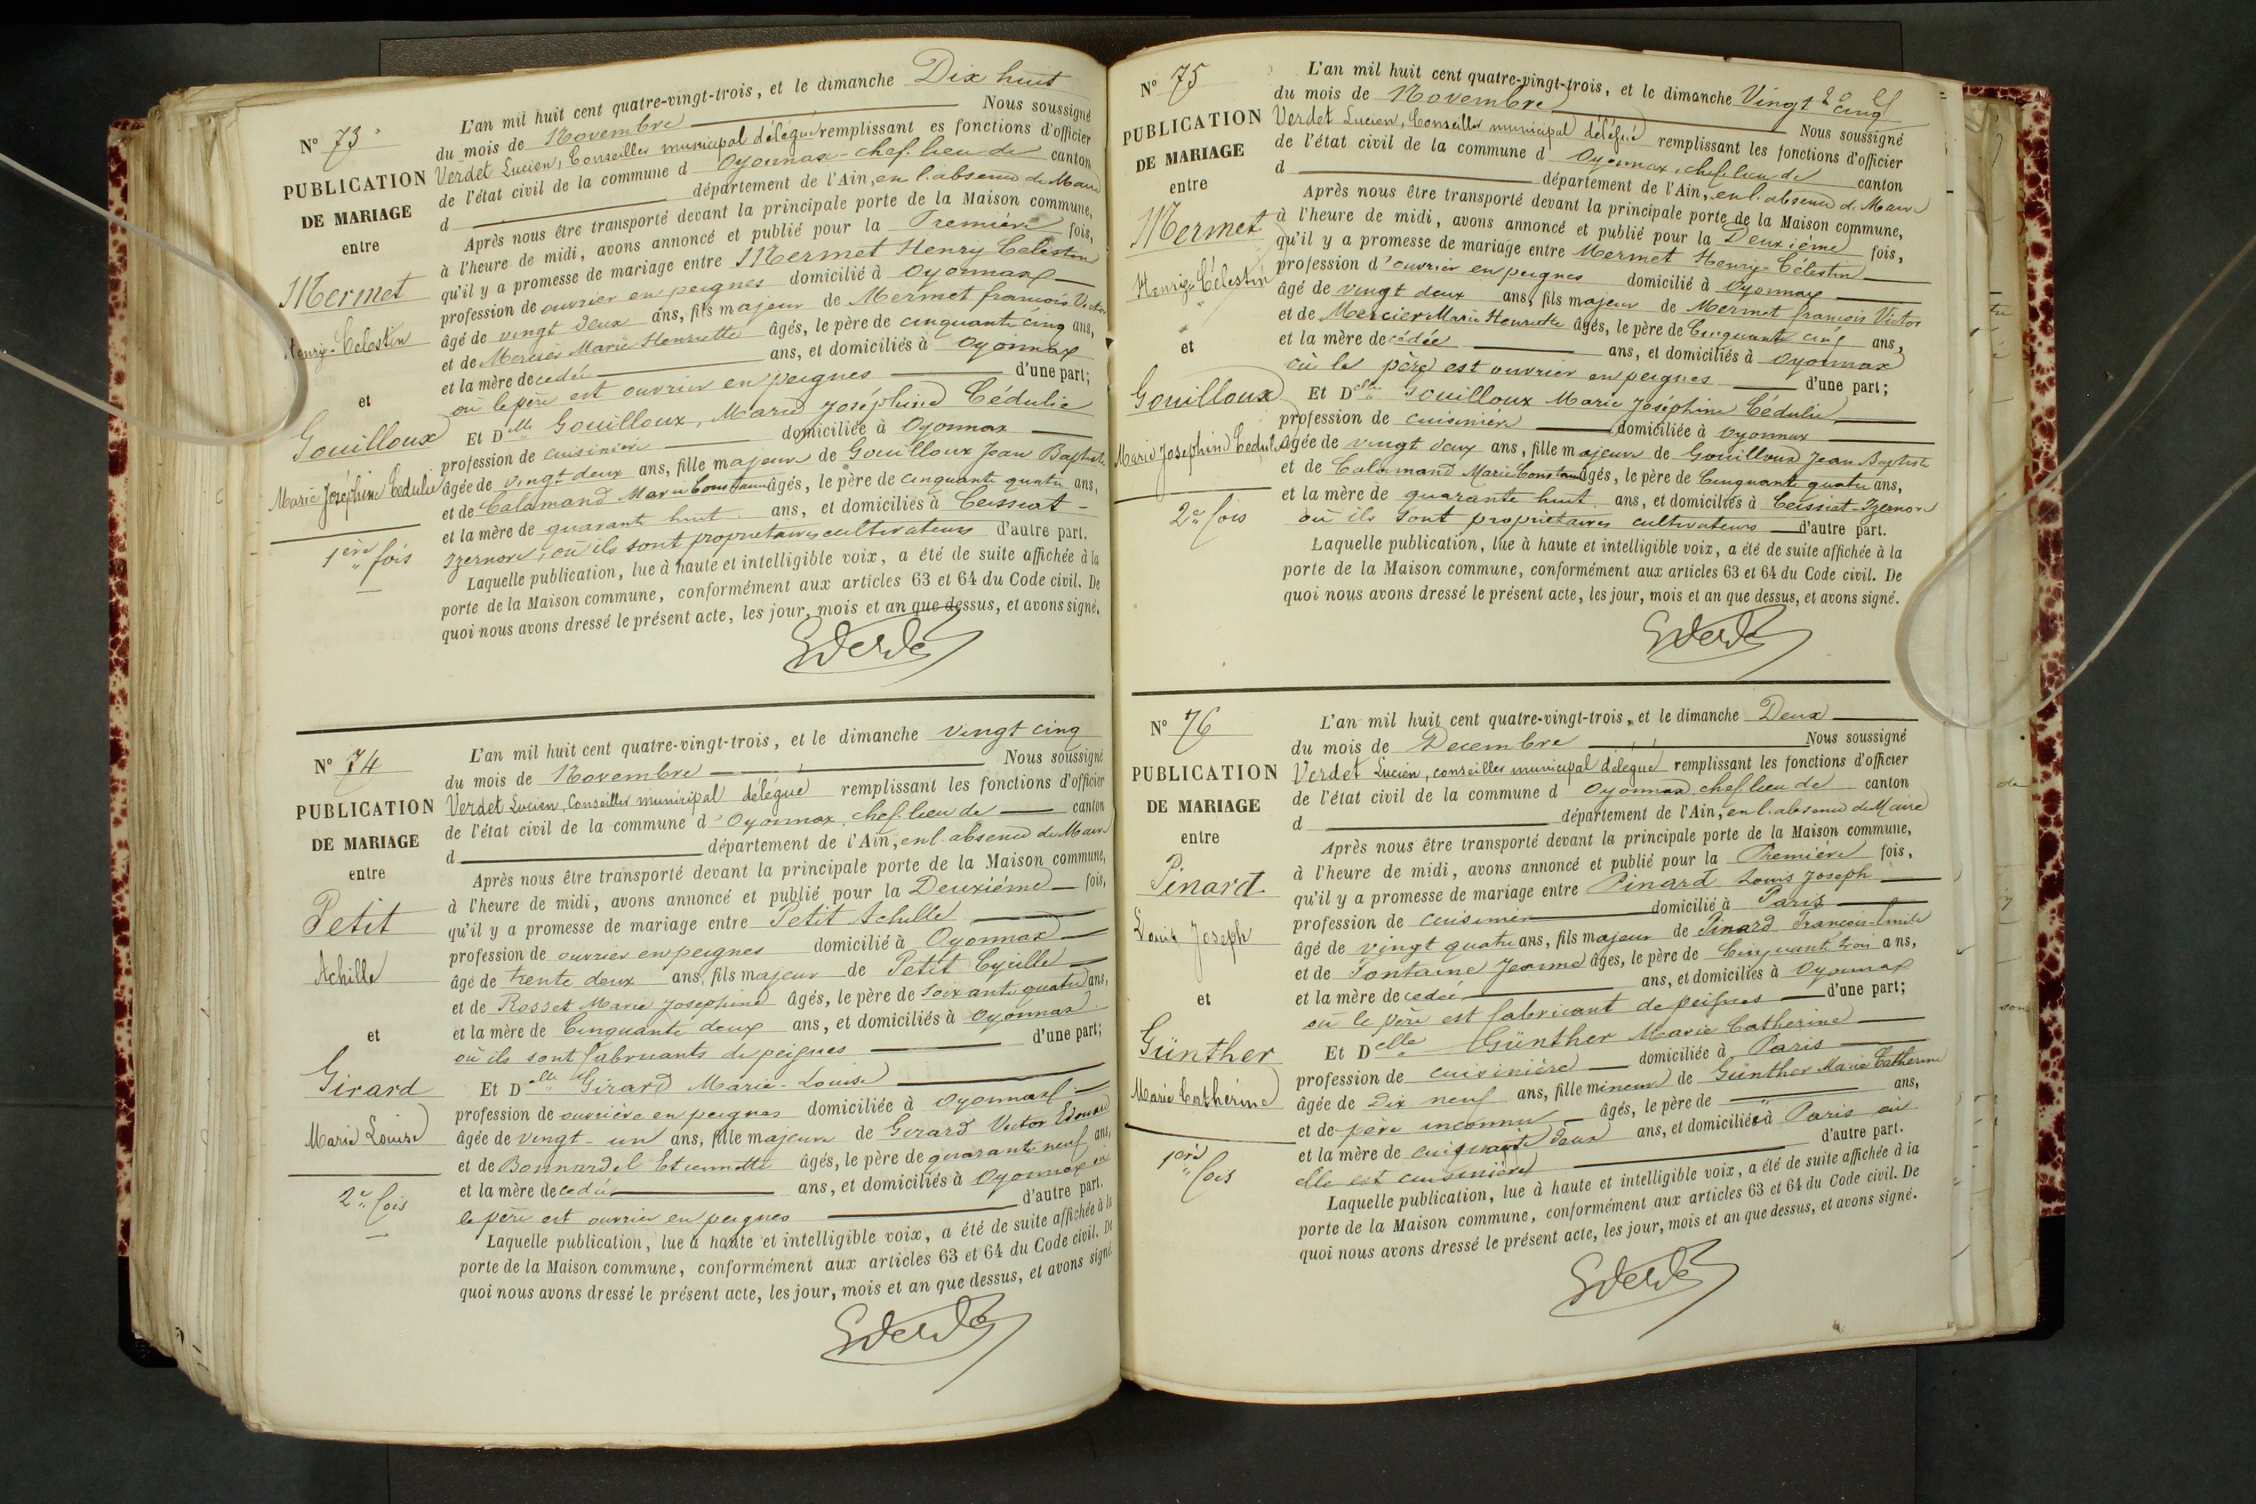 N° 73
PUBLICATION
DE MARIAGE
entre
Mermet
Henry-Célestin
et
Gouilloux
Marie Joséphine Cédulie
1ère fois
L'an mil huit cent quatre-vingt-trois, et le dimanche Dix huit
du mois de Novembre Nous soussigné
Verdet Lucien, Conseiller municipal délégué remplissant es fonctions d'officier
de l'état civil de la commune d Oyonnax - chef-lieu de canton
d département de l'Ain, en l'absence du Maire
Après nous être transporté devant la principale porte de la Maison commune,
à l'heure de midi, avons annoncé et publié pour la Première fois,
qu'il y a promesse de mariage entre Mermet Henry Célestin
profession de ouvrier en peignes domicilié à Oyonnax
âgé de vingt deux ans, fils majeur de Mermet françois Victor
et de Mercier Marie Henriette âgés, le père de cinquante cinq ans,
et la mère décédée ans, et domiciliés à Oyonnax
où le père est ouvrier en peignes d'une part;
Et Dlle Gouilloux, Marie Joséphine Cédulie
profession de cuisinière domiciliée à Oyonnax
âgée de vingt-deux ans, fille majeure de Gouilloux Jean Baptiste
et de Calamand Marie Constance âgés, le père de cinquante quatre ans,
et la mère de quarante huit ans, et domiciliés à Ceissiat -
Izernore, où ils sont propriétaires cultivateurs d'autre part.
Laquelle publication, lue à haute et intelligible voix, a été de suite affichée à la
porte de la Maison commune, conformément aux articles 63 et 64 du Code civil. De
quoi nous avons dressé le présent acte, les jour, mois et an que dessus, et avons signé.
N° 74
PUBLICATION
DE MARIAGE
entre
Petit
Achille
et
Girard
Marie Louise
2e fois
L'an mil huit cent quatre-vingt-trois, et le dimanche vingt cinq
du mois de Novembre Nous soussigné
Verdet Lucien, Conseiller municipal délégué remplissant les fonctions d'officier
de l'état civil de la commune d'Oyonnax, chef-lieu de canton
d département de l'Ain, en l'absence du Maire
Après nous être transporté devant la principale porte de la Maison commune,
à l'heure de midi, avons annoncé et publié pour la Deuxième fois,
qu'il y a promesse de mariage entre Petit Achille
profession de ouvrier en peignes domicilié à Oyonnax
âgé de trente deux ans, fils majeur de Petit Cyrille
et de Rosset Marie Josephine âgés, le père de Soixante quatre ans,
et la mère de Cinquante deux ans, et domiciliés à Oyonnax
où ils sont fabricants de peignes d'une part;
Et Dlle Girard Marie-Louise
profession de ouvrière en peignes domiciliée à Oyonnax
âgée de vingt-un ans, fille majeure de Girard Victor Edouard
et de Bonnardel Etiennette âgés, le père de quarante neuf ans,
et la mère décédée ans, et domiciliés à Oyonnax où
le père est ouvrier en peignes d'autre part.
Laquelle publication, lue à haute et intelligible voix, a été de suite affichée à la
porte de la Maison commune, conformément aux articles 63 et 64 du Code civil. De
quoi nous avons dressé le présent acte, les jour, mois et an que dessus, et avons signé
N° 75
PUBLICATION
DE MARIAGE
entre
Mermet
Henry-Célestin
et
Gouilloux
Marie Joséphine Cédulie
2e fois
L'an mil huit cent quatre-vingt-trois, et le dimanche Vingt cinq
du mois de Novembre Nous soussigné
Verdet Lucien, Conseiller municipal délégué remplissant les fonctions d'officier
de l'état civil de la commune d Oyonnax, chef-lieu de canton
d département de l'Ain, en l'absence du Maire
Après nous être transporté devant la principale porte de la Maison commune,
à l'heure de midi, avons annoncé et publié pour la Deuxième fois,
qu'il y a promesse de mariage entre Mermet Henry-Célestin
profession d'ouvrier en peignes domicilié à Oyonnax
âgé de vingt deux ans, fils majeur de Mermet françois Victor
et de Mercier Marie Henriette âgés, le père de Cinquante cinq ans,
et la mère décédée ans, et domiciliés à Oyonnax
où le père est ouvrier en peignes d'une part;
Et Dlle Gouilloux Marie Joséphine Cédulie
profession de cuisinière domiciliée à Oyonnax
âgée de vingt deux ans, fille majeure de Gouilloux Jean Baptiste
et de Calamand Marie Constance âgés, le père de Cinquante quatre ans,
et la mère de quarante huit ans, et domiciliés à Ceissiat-Izernore
où ils sont propriétaires cultivateurs d'autre part.
Laquelle publication, lue à haute et intelligible voix, a été de suite affichée à la
porte de la Maison commune, conformément aux articles 63 et 64 du Code civil. De
quoi nous avons dressé le présent acte, les jour, mois et an que dessus, et avons signé.
N° 76
PUBLICATION
DE MARIAGE
entre
Pinard
Louis Joseph
et
Günther
Marie Catherine
1ère fois
L'an mil huit cent quatre-vingt-trois, et le dimanche Deux
du mois de Decembre Nous soussigné
Verdet Lucien, conseiller municipal délégué remplissant les fonctions d'officier
de l'état civil de la commune d Oyonnax, chef lieu de canton
d département de l'Ain, en l'absence du Maire
Après nous être transporté devant la principale porte de la Maison commune,
à l'heure de midi, avons annoncé et publié pour la Première fois,
qu'il y a promesse de mariage entre Pinard Louis Joseph
profession de cuisinier domicilié à Paris
âgé de vingt quatre ans, fils majeur de Pinard François-Emile
et de Fontaine Jeanne âgés, le père de Cinquante trois ans,
et la mère décédée ans, et domiciliés à Oyonnax
où le père est fabricant de peignes d'une part;
Et Delle Günther Marie Catherine
profession de cuisinière domiciliée à Paris
âgée de Dix neuf ans, fille mineure de Günther Marie Catherine
et de père inconnu âgés, le père de ans,
et la mère de cinquante deux ans, et domiciliés à Paris où
elle est cuisinière d'autre part.
Laquelle publication, lue à haute et intelligible voix, a été de suite affichée à la
porte de la Maison commune, conformément aux articles 63 et 64 du Code civil. De
quoi nous avons dressé le présent acte, les jour, mois et an que dessus, et avons signé.